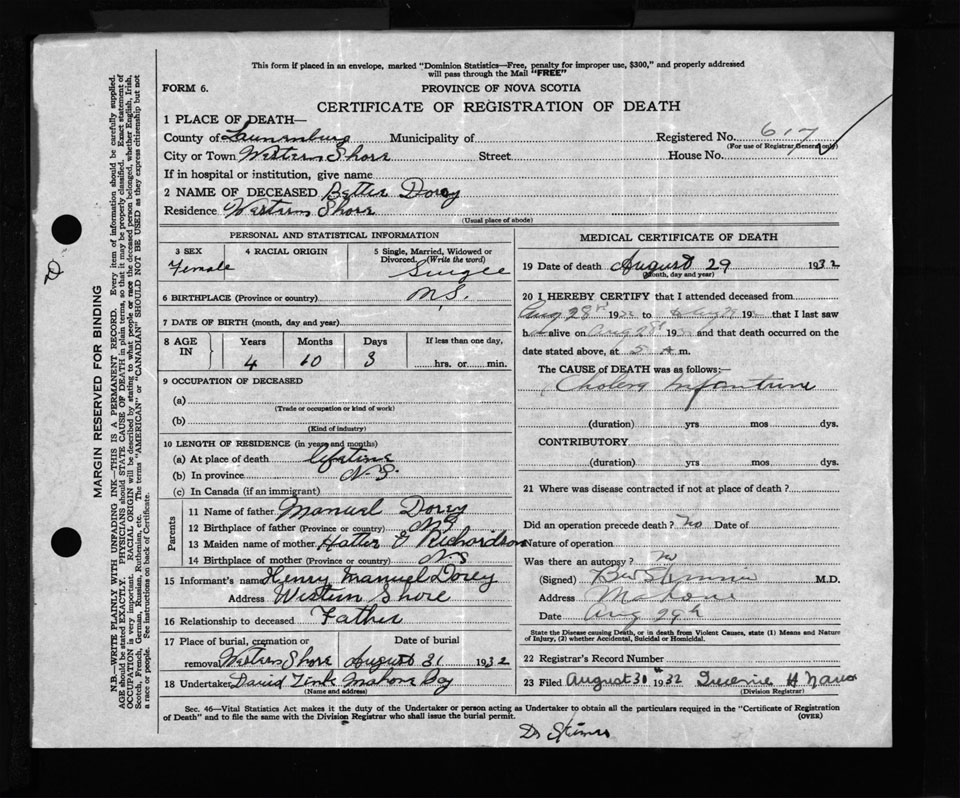 This form if placed in an envelope, marked "Dominion Statistics—Free, penalty for improper use, $300," and properly addressed
will pass through the Mail "FREE"
FORM 6.
PROVINCE OF NOVA SCOTIA
CERTIFICATE OF REGISTRATION OF DEATH
MARGIN RESERVED FOR BINDING
N.B.—WRITE PLAINLY WITH UNFADING INK—THIS IS A PERMANENT RECORD. Every item of information should be carefully supplied.
AGE should be stated EXACTLY. PHYSICIANS should STATE CAUSE OF DEATH in plain terms, so that it may be properly classified. Exact statement of
OCCUPATION is very important. RACIAL ORIGIN will be described by stating to what people or race the deceased person belonged, whether English, Irish,
Scotch, French, German, Russian, Ruthenian, etc. The terms "AMERICAN" or "CANADIAN" SHOULD NOT BE USED as they express citizenship but not
a race or people. See instructions on back of Certificate.
1 PLACE OF DEATH—
County of Lunenburg Municipality of Registered No. 617
(For use of Registrar General only)
City or Town Western Shore Street House No.
If in hospital or institution, give name
2 NAME OF DECEASED Dorey
Residence Western Shore
(Usual place of abode)
PERSONAL AND STATISTICAL INFORMATION
3 SEX Female
4 RACIAL ORIGIN
5 Single, Married, Widowed or
Divorced. (Write the word)
Single
6 BIRTHPLACE (Province or country) N.S.
7 DATE OF BIRTH (month, day and year)
8 AGE IN Years Months Days If less than one day,
4 10 3 hrs. or min.
9 OCCUPATION OF DECEASED
(a)
(Trade or occupation or kind of work)
(b)
(Kind of industry)
10 LENGTH OF RESIDENCE (in years and months)
(a) At place of death lifetime
(b) In province N.S.
(c) In Canada (if an immigrant)
Parents
11 Name of father Manuel Dorey
12 Birthplace of father (Province or country) N.S
13 Maiden name of mother Richardson
14 Birthplace of mother (Province or country) N.S
15 Informant's name Henry Manuel Dorey
Address Western Shore
16 Relationship to deceased Father
17 Place of burial, cremation or
removal Western Shore
Date of burial
August 31 1932
18 Undertaker David Zink Mahone Bay
(Name and address)
MEDICAL CERTIFICATE OF DEATH
19 Date of death August 29 1932
(Month, day and year)
20 I HEREBY CERTIFY that I attended deceased from
Aug 28th 1932 to 193 that I last saw
h alive on Aug 28th 193 and that death occurred on
the date stated above, at A m.
The CAUSE of DEATH was as follows:—
Cholera Infantum
(duration) yrs mos dys.
CONTRIBUTORY
(duration) yrs mos dys.
21 Where was disease contracted if not at place of death?
Did an operation precede death? No Date of
Nature of operation
Was there an autopsy? No
(Signed) M.D.
Address Mahone
Date Aug 29th
State the Disease causing Death, or in death from Violent Causes, state (1) Means and Nature
of Injury, (2) whether Accidental, Suicidal or Homicidal.
22 Registrar's Record Number
23 Filed August 31 1932
(Division Registrar)
Sec. 46—Vital Statistics Act makes it the duty of the Undertaker or person acting as Undertaker to obtain all the particulars required in the "Certificate of Registration
of Death" and to file the same with the Division Registrar who shall issue the burial permit.
(OVER)